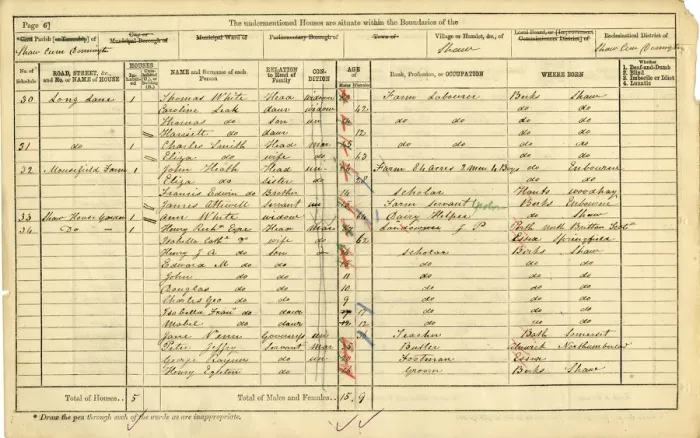 Page 6] The undermentioned Houses are situate within the Boundaries of the
Civil Parish [or Township] of City or Municipal Borough of Municipal Ward of Parliamentary Borough of Town of Village or Hamlet, &c., of Local Board, or [Improvement Commissioners District] of Ecclesiastical District of
Shaw Cum Donnington Shaw Shaw Cum Donnington
No. of Schedule ROAD, STREET, &c., and No. or NAME of HOUSE HOUSES NAME and Surname of each Person RELATION to Head of Family CON-DITION AGE of Rank, Profession, or OCCUPATION WHERE BORN Whether
1. Deaf-and-Dumb
2. Blind
3. Imbecile or Idiot
4. Lunatic
30 Long Lane 1 Thomas White Head widower Farm Labourer Berks Shaw
Caroline daur widow 42 do do
Thomas do son un do do do do
Harriett do daur 12 do do
31 do 1 Charles Smith Head mar 45 do do do
Eliza do wife do 43 do do
32 Mousefield Farm 1 John Heath Head un Farm 84 acres 2 men 4 Boys do Enbourne
Eliza do sister do do do
Francis Edwin do Brother 14 scholar Hants woodhay
James Attwell servant un Farm servant Berks Enbourne
33 Shaw House Garden 1 Ann White widow Dairy Helper do Shaw
34 Do 1 Henry Eyre Head mar Landowner J P Perth North Britton
Isabella do wife do 62 Essex Springfield
Henry J A do son scholar Berks Shaw
Edward M do do do do do
John do do 11 do do do
Douglas do do 10 do do do
Charles Geo do do 9 do do do
Isabella do daur 17 do do do
Mabel do daur 12 do do do
Jane Governess un Teacher Bath Somerset
Peter Jeffry servant mar Butler Alnwick Northumberland
George do un Footman Essex
Henry Egleton do Groom Berks Shaw
Total of Houses.. 5 Total of Males and Females.. 15 9
* Draw the pen through such of the words as are inappropriate.